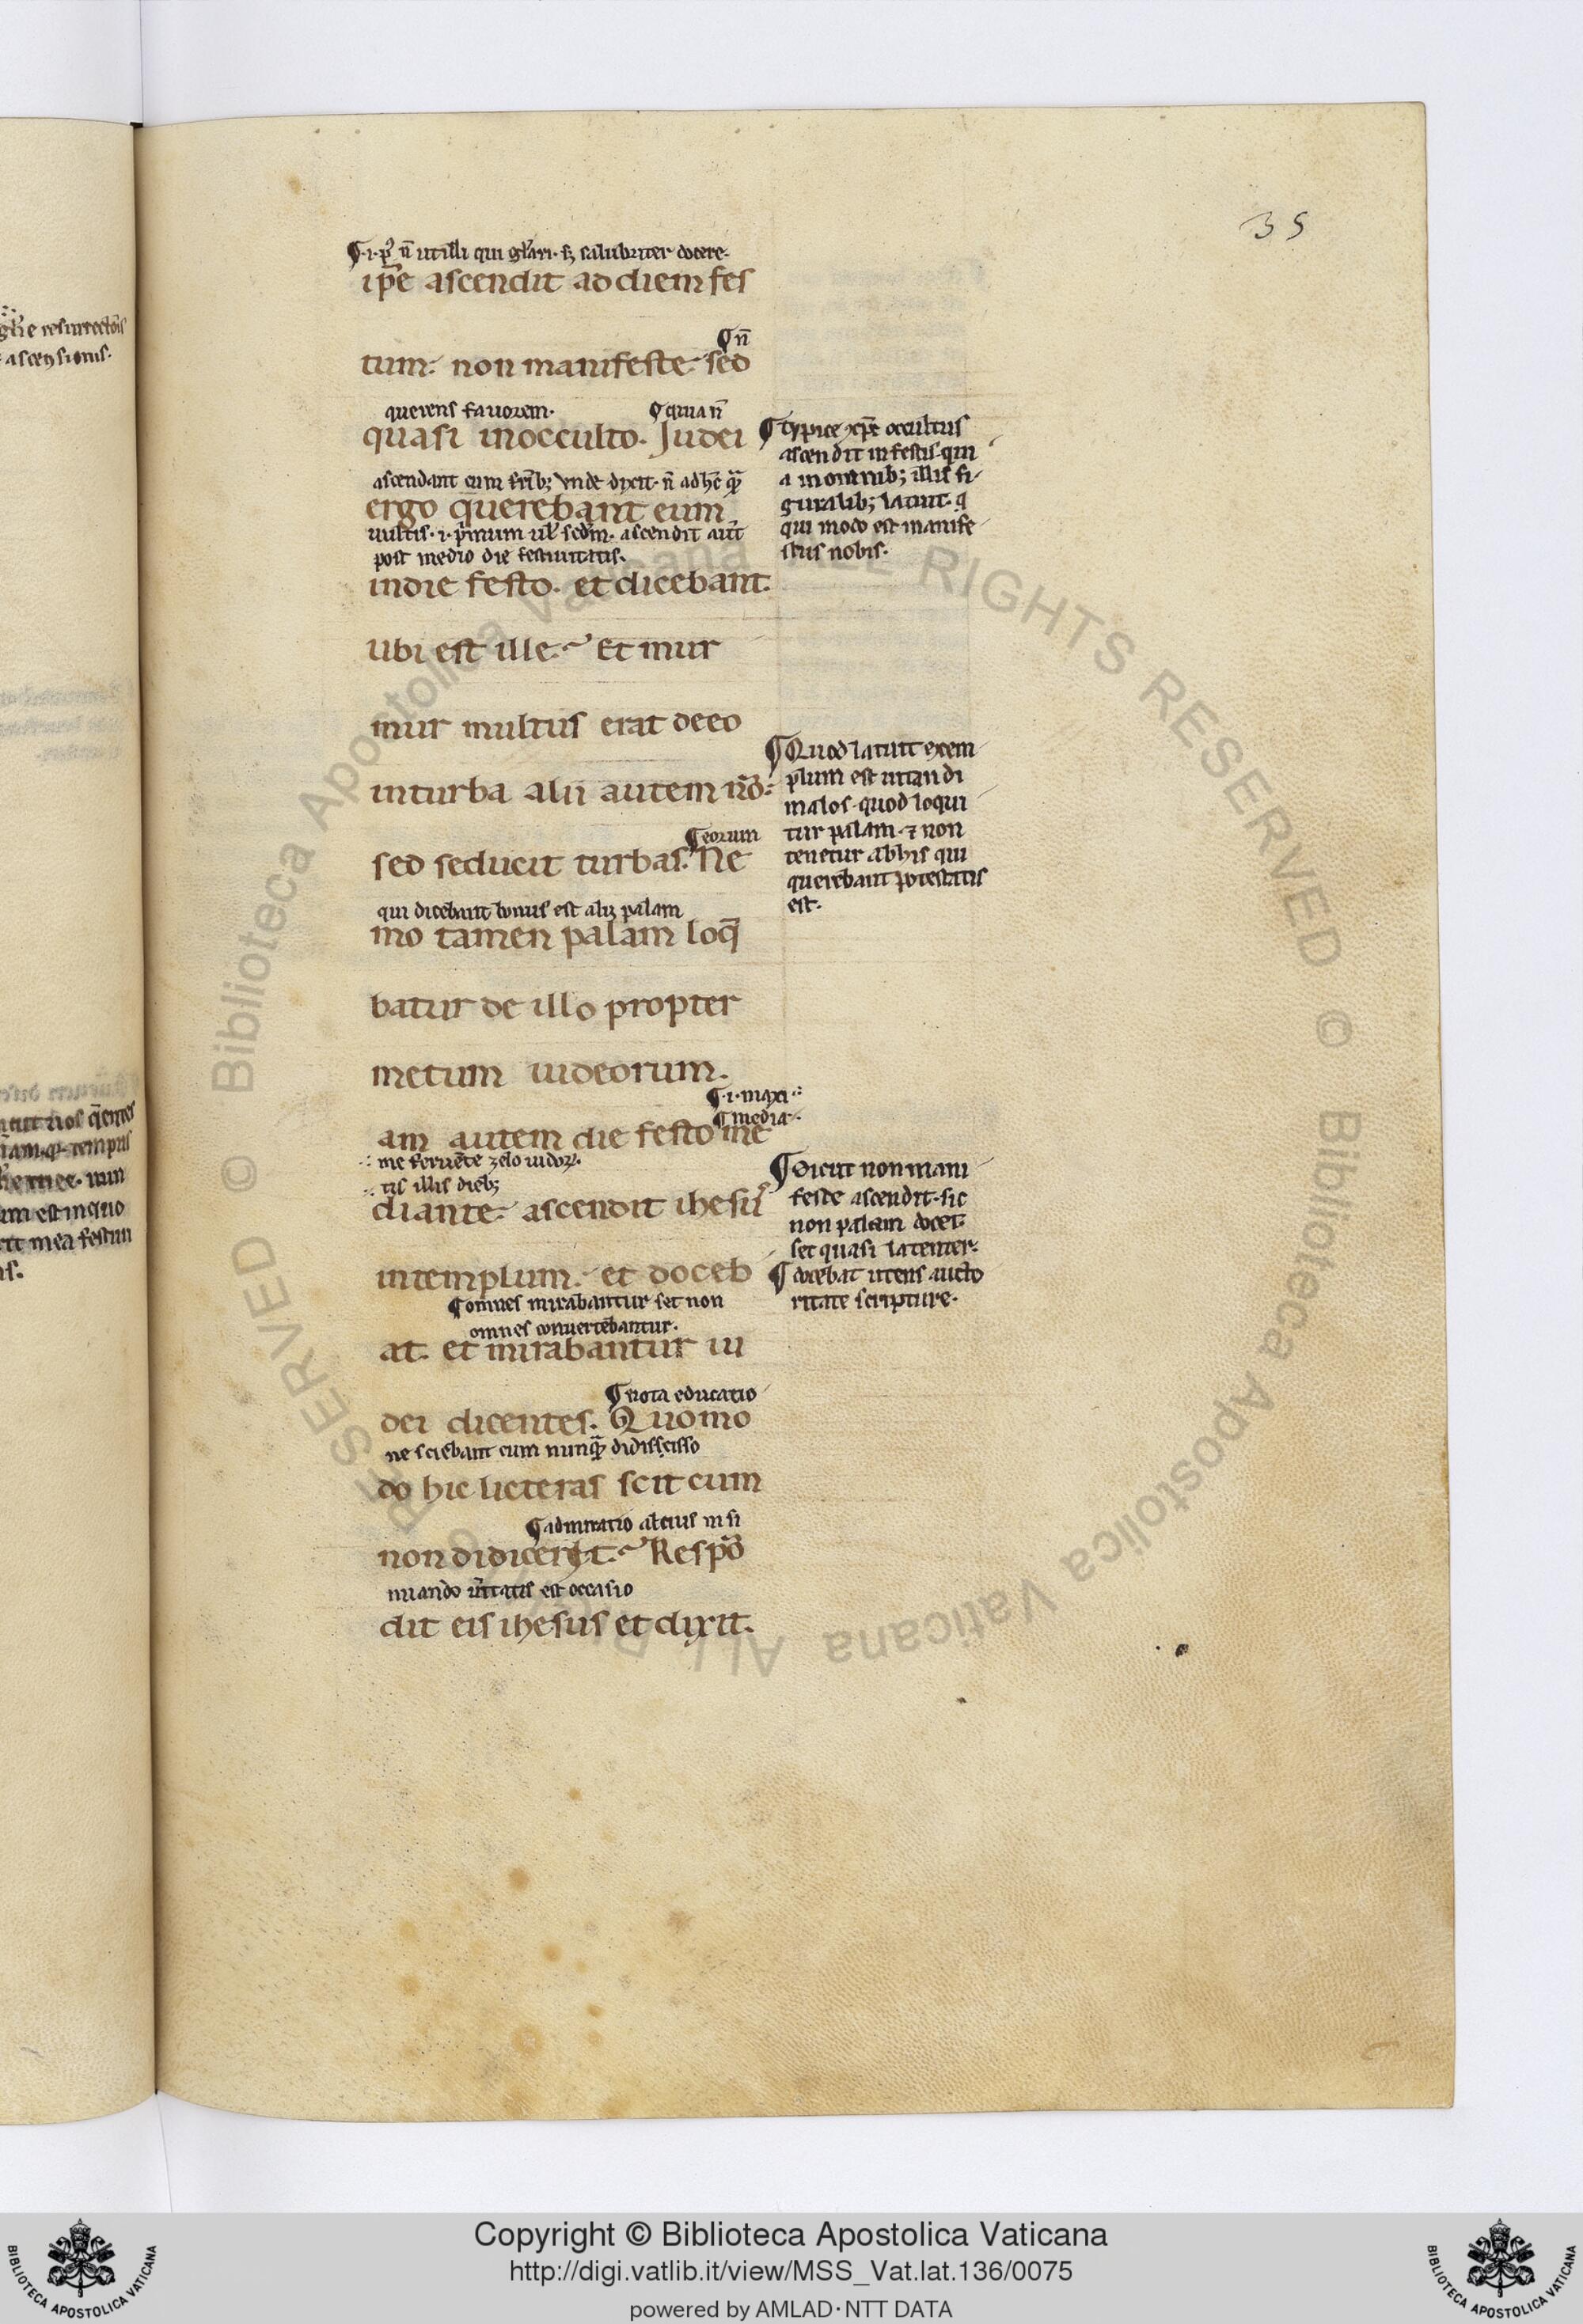 35
¶ .i. ꝑ̉ n̄ utilli qui gl̄ari. sꝫ salubriter docere.
ip̄e ascendit ad diem fes
¶ n̄
tum. non manifeste. sed
querens fauorem. ¶ quia n̄
quasi in occulto. Judei
ascendant cum fr̄ibꝫ vnde dixit. n̄ ad hc̄
ergo querebant eum
uultis. i. p̄imum ul̄ secd̄m. ascendit aut̄
post medio die festiuitatis.
in die festo. et dicebant.
Ubi est ille. Et mur
mur multus erat de eo
in turba alii autem nō:
¶ eorum
sed seducit turbas. Ne
qui dicebant bonus est alii palam
mo tamen palam loq̄
batur de illo propter
metum iudeorum.
¶ .i. maxi
¶ media
am autem die festo me
me feruēte zelo iudoꝝ.
tis illis diebꝫ
diante. ascendit ihesuˢ
in templum. et doceb
¶ omnes mirabantur set non
omnes conuertebantur.
at. et mirabantur iu
¶ nota educatio
dei dicentes. Quomo
ne sciebant eum nunqᷓ didiscisso
do hic licteras scit cum
¶ admiratio alcius insi
non didicerit. Respō
nuando ūitatis est occasio
dit eis ihesus et dixit.
¶ typice xp̄c occultus
ascendit in festis. qui
a in omnibꝫ illis fi
guralibꝫ latuit. q
qui modo est manife
stus nobis.
¶ Quod latuit exem
plum est uitandi
malos. quod loqui
tur palam. ⁊ non
tenetur ab his qui
querebant potestatis
est.
¶ Sicut non mani
feste ascendit. sic
non palam docet
set quasi latenter.
¶ docebat utens aucto
ritate scripture.
gl̄ie resurrectōis
ascensionis.
Copyright © Biblioteca Apostolica Vaticana
http://digi.vatlib.it/view/MSS_Vat.lat.136/0075
powered by AMLAD·NTT DATA
BIBLIOTECA APOSTOLICA VATICANA
BIBLIOTECA APOSTOLICA VATICANA
© Biblioteca Apostolica Vaticana ALL RIGHTS RESERVED © Biblioteca Apostolica Vaticana ALL RIGHTS RESERVED